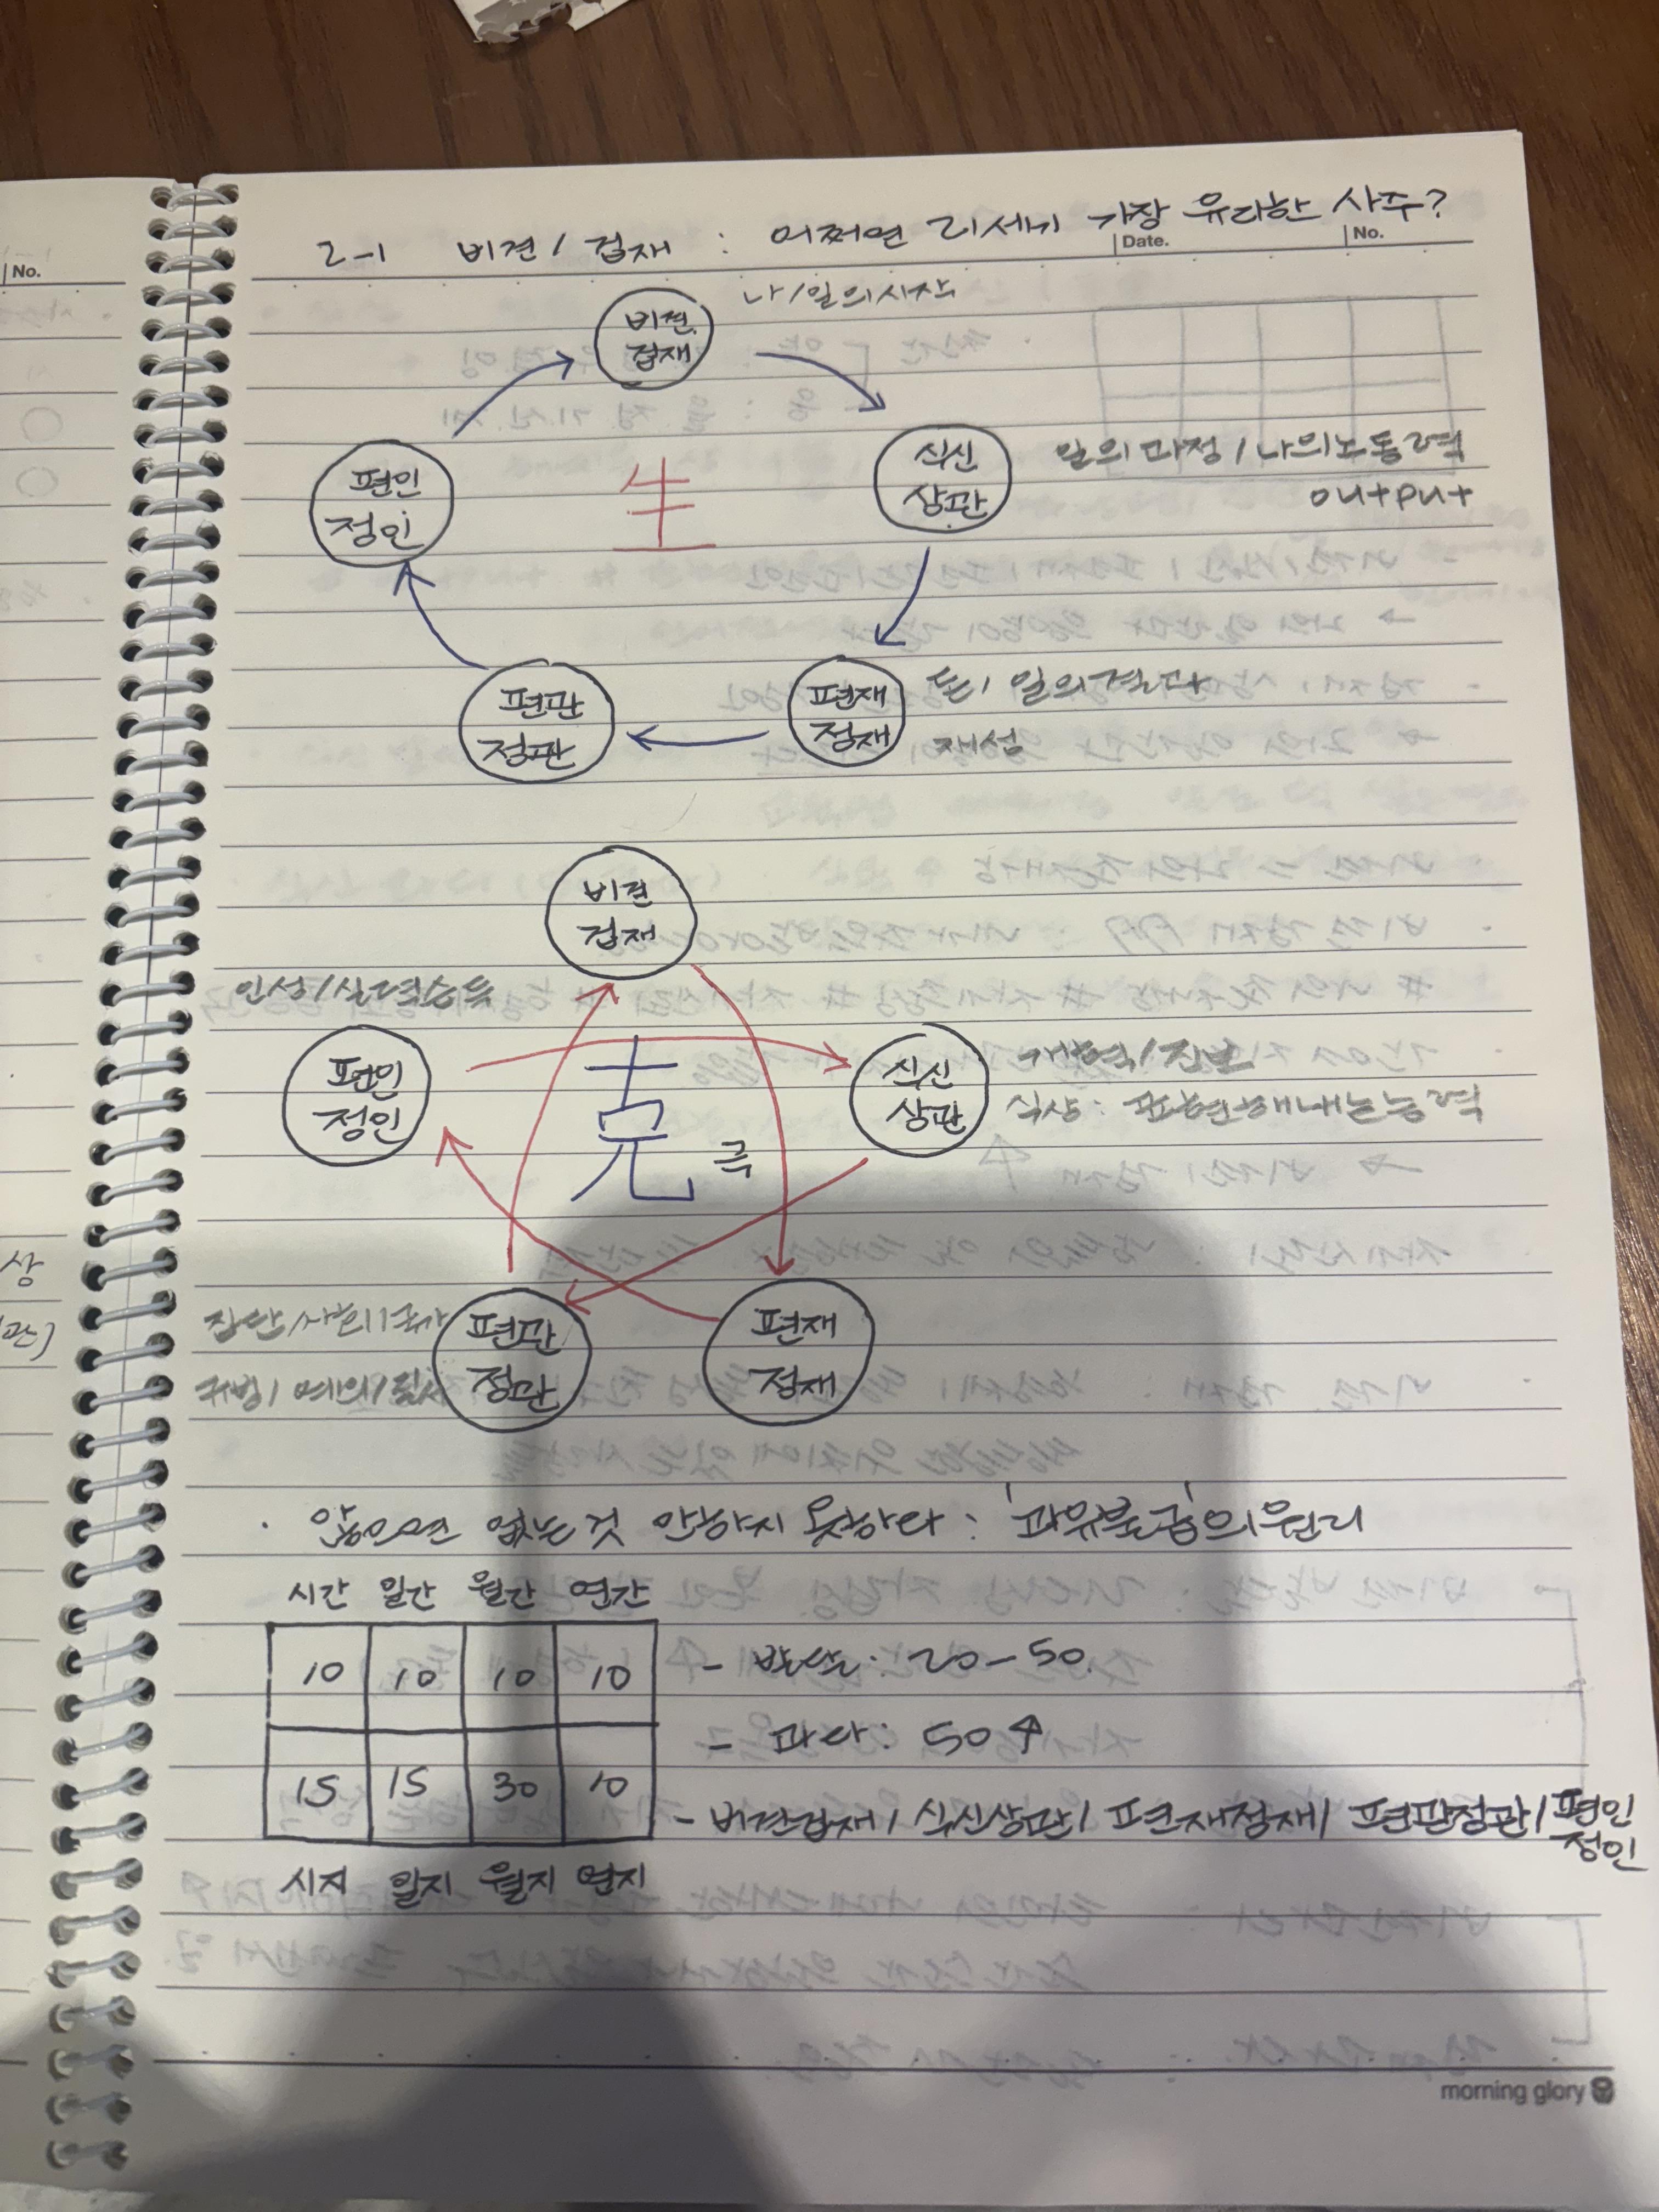 Date.
No.
No.
2-1 비견/겁재 : 어쩌면 21세기 가장 유리한 사주?
나/일의시작
비견
겁재
편인
정인
生
식신
상관
일의과정/나의노동력
output
편관
정관
편재
정재
돈/일의결과
재성
비견
겁재
인성/실력습득
편인
정인
克
극
식신
상관
개혁/진보
식상: 표현해내는능력
상
관)
집단/사회/국가
규범/예의/질서
편관
정관
편재
정재
· 않으면 없는것 만하지 못하다 : '과유불급'의원리
시간 일간 월간 연간
10 10 10 10
15 15 30 10
시지 일지 월지 연지
- 발달: 20-50.
- 과다: 50↑
- 비견겁재/ 식신상관/ 편재정재/ 편관정관/편인
정인
morning glory